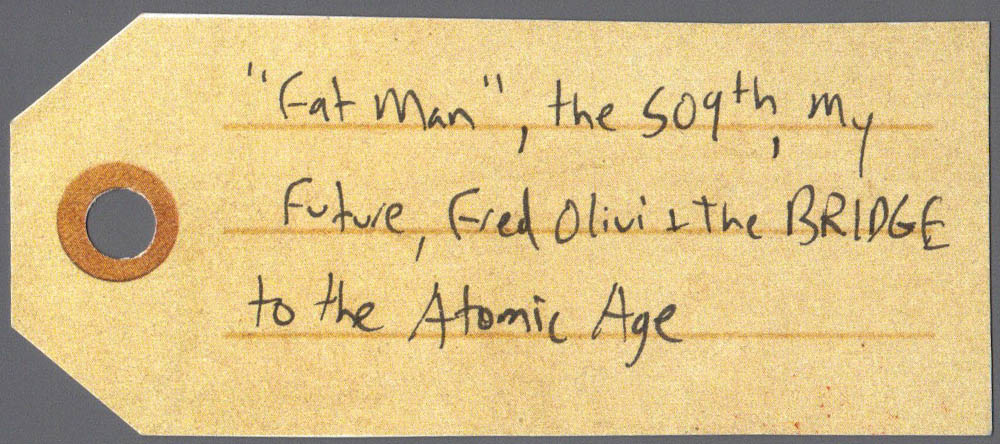 "Fat Man", the 509th, My
Future, Fred Olivi & the BRIDGE
to the Atomic Age